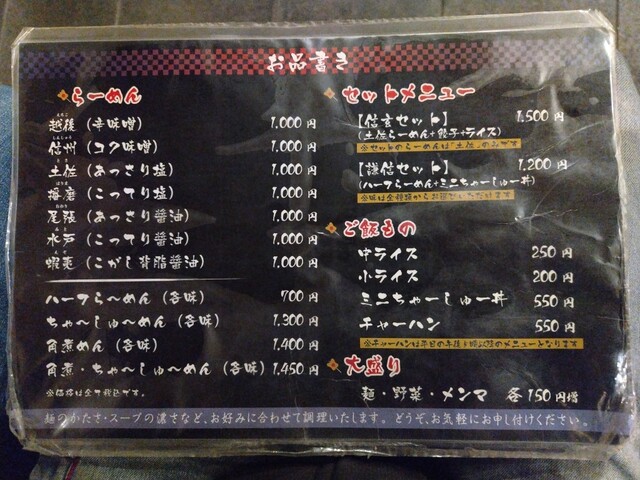 お品書き
らーめん
えちご
越後 (辛味噌) 1,000円
しんしゅう
信州 (コク味噌) 1,000円
とさ
土佐 (あっさり塩) 1,000円
はりま
播磨 (こってり塩) 1,000円
おわり
尾張 (あっさり醤油) 1,000円
みと
水戸 (こってり醤油) 1,000円
えぞ
蝦夷 (こがし背脂醤油) 1,000円
ハーフら〜めん (各味) 700円
ちゃ〜しゅ〜めん (各味) 1,300円
角煮めん (各味) 1,400円
角煮・ちゃ〜しゅ〜めん (各味) 1,450円
※価格は全て税込です。
セットメニュー
【信玄セット】 1,500円
(土佐らーめん+餃子+ライス)
※セットのらーめんは「土佐」のみです
【謙信セット】 1,200円
(ハーフらーめん+ミニちゃーしゅー丼)
※味は全種類からお選びいただけます
ご飯もの
中ライス 250円
小ライス 200円
ミニちゃーしゅー丼 550円
チャーハン 550円
※チャーハンは平日の午後 のメニューとなります
大盛り
麺・野菜・メンマ 各150円増
麺のかたさ・スープの濃さなど、お好みに合わせて調理いたします。どうぞ、お気軽にお申し付けください。